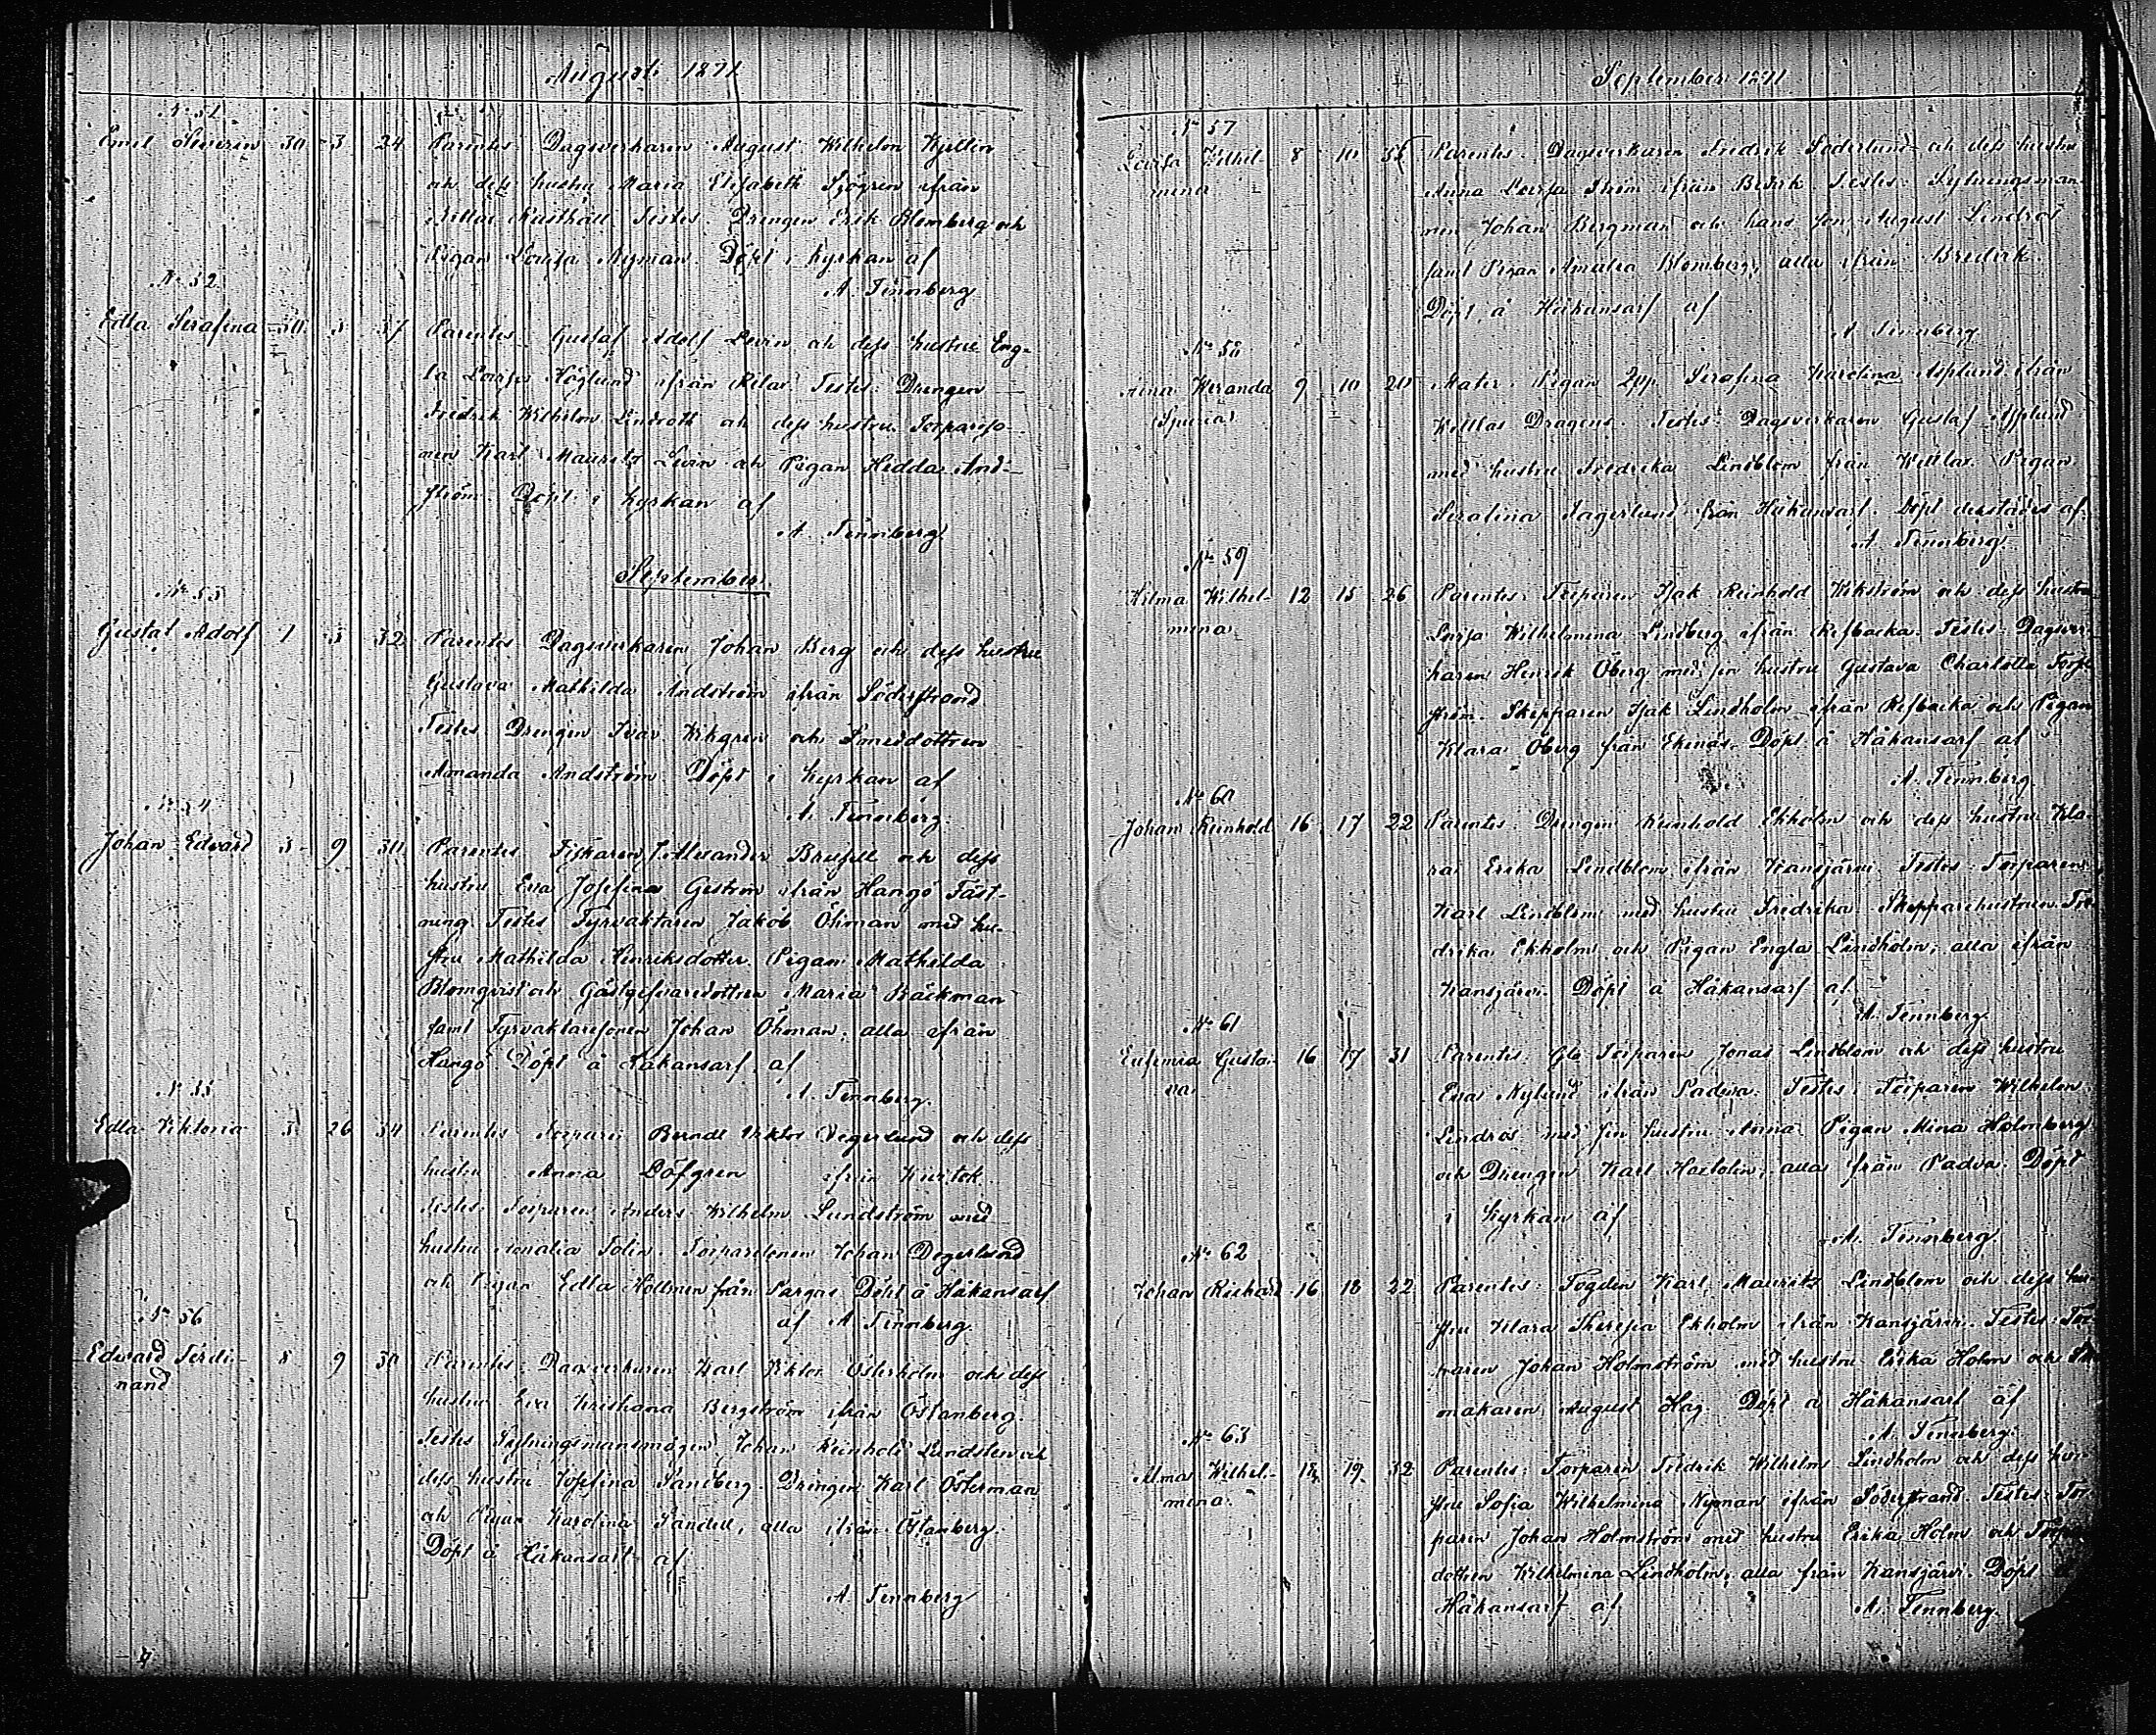 August 1871
No 51
Emil Severin 30 3 24 Parentes Dagsverkaren August Wilhelm Kjellin
och dess hustru Maria Elisabeth Sjögren ifrån
Rusthåll Testes. Drengen Erik Blomberg och
Pigan Lovisa Nyman. Döpt i kyrkan af
A. Tennberg
No 52
Edla Serafina 30 3 37 Parentes. Gustaf Adolf Levin och dess hustru Eng-
la Lovisa Höglund ifrån Rilax. Testes: Drengen
Fredrik Wilhelm Lindroth och dess hustru. Torpareso-
nen Karl Mauritz Levin och Pigan Hedda And-
ström. Döpt i kyrkan af
A. Tennberg
September
No 53
Gustaf Adolf 1 3 32 Parentes Dagsverkaren Johan Berg och dess hustru
Gustava Mathilda Andström ifrån Söderstrand
Testes Drengen Ivar Wikgren och Smeddottren
Amanda Andström. Döpt i kyrkan af
A. Tennberg.
No 54
Johan Edvard 3 9 30 Parentes Fiskaren Alexander och dess
hustru Eva Josefina Geström ifrån Hangö Fäst-
ning. Testes Fyrvaktaren Jakob Öhman med hu-
stru Mathilda Henriksdotter. Pigan Mathilda
Blomqvist och Gästgifvaredottren Maria Bäckman
samt Fyrvaktaresonen Johan Öhman, alla ifrån
Hangö. Döpt å Håkansarf af
A. Tennberg.
No 55
Edla Viktoria 3 26 34 Parentes Torparen Berndt Viktor Degerlund och dess
hustru Anna Löfgren ifrån
Testes: Torparen Anders Wilhelm Lundström med
hustru Amalia Tolin. Torparesonen Johan Degerlund
och Pigan Edla Hollmén från Pargas Döpt å Håkansarf
af A Tennberg.
No 56
Edvard Ferdi- 8 9 30 Parentes. Dagsverkaren Karl Viktor Österholm och dess
nand
hustru Eva Kristiana Bergström ifrån Östanberg.
Testes Johan Reinhold Lundsten och
dess hustru Josefina Sandberg. Drengen Karl Österman
och Pigan Karolina Sandell, alla ifrån Östanberg.
Döpt å Håkansarf af
A. Tennberg
September 1871
No 57
Lovisa Wilhel- 8 10 Parentes. Dagsverkaren Fredrik Söderlund och dess hustru
mina
Anna Lovisa Ström ifrån Bredvik. Testes. Fylningsman-
nen Johan Bergman och hans son August Lindros
samt Pigan Amalia Blomberg, alla ifrån Bredvik.
Döpt å Håkansarf af
A Tennberg
No 58
Aina Weranda 9 10 20 Mater. Pigan Serafina Karolina Asplund ifrån
(Spuria)
Dragens. Testes: Dagsverkaren Gustaf Asplund
med hustru Fredrika Lindblom från Pigan
Serafina Fagerlund från Håkansarf. Döpt derstädes af
A. Tennberg.
No 59
Hilma Wilhel- 12 15 26 Parentes: Torparen Isak Reinhold Wikström och dess hustru
mina
Lovisa Wilhelmina Lindberg ifrån Refbacka. Testes: Dagsver-
karen Henrik Öberg med sin hustru Gustava Charlotta
ström. Skepparen Isak Lindholm ifrån Refbacka och Pigan
Klara Öberg från Ekenäs. Döpt å Håkansarf af
A. Tennberg
No 60
Johan Reinhold 16 17 22 Parentes: Drengen Reinhold Ekholm och dess hustru Kla-
ra Erika Lindblom ifrån Hansjärvi. Testes: Torparen
Karl Lindblom med hustru Fredrika. Skepparehustrun Fre-
drika Ekholm och Pigan Engla Lindholm, alla ifrån
Hansjärvi. Döpt å Håkansarf af
A. Tennberg
No 61
Eufemia Gusta- 16 17 31 Parentes. Torparen Jonas Lindblom och dess hustru
va
Eva Nylund ifrån Padva. Testes. Torparen Wilhelm
Lindros med sin hustru Anna. Pigan Mina Holmberg
och Drengen Karl, alla från Padva. Döpt
i kyrkan af
A. Tennberg
No 62
Johan Richard 16 18 22 Parentes: Fogden Karl Mauritz Lindblom och dess hu-
stru Klara Theresia Ekholm ifrån Hansjärvi. Testes: Tor-
paren Johan Holmström med hustru Erika Holm och
makaren August Hag. Döpt å Håkansarf af
A. Tennberg.
No 63
Alma Wilhel- 18 19 32 Parentes: Torparen Fredrik Wilhelm Lindholm och dess hu-
mina
stru Sofia Wilhelmina Nyman ifrån Söderstrand. Testes: Tor-
paren Johan Holmström med hustru Erika Holm och
dottren Wilhelmina Lindholm, alla från Hansjärvi. Döpt
Håkansarf af A. Tennberg.